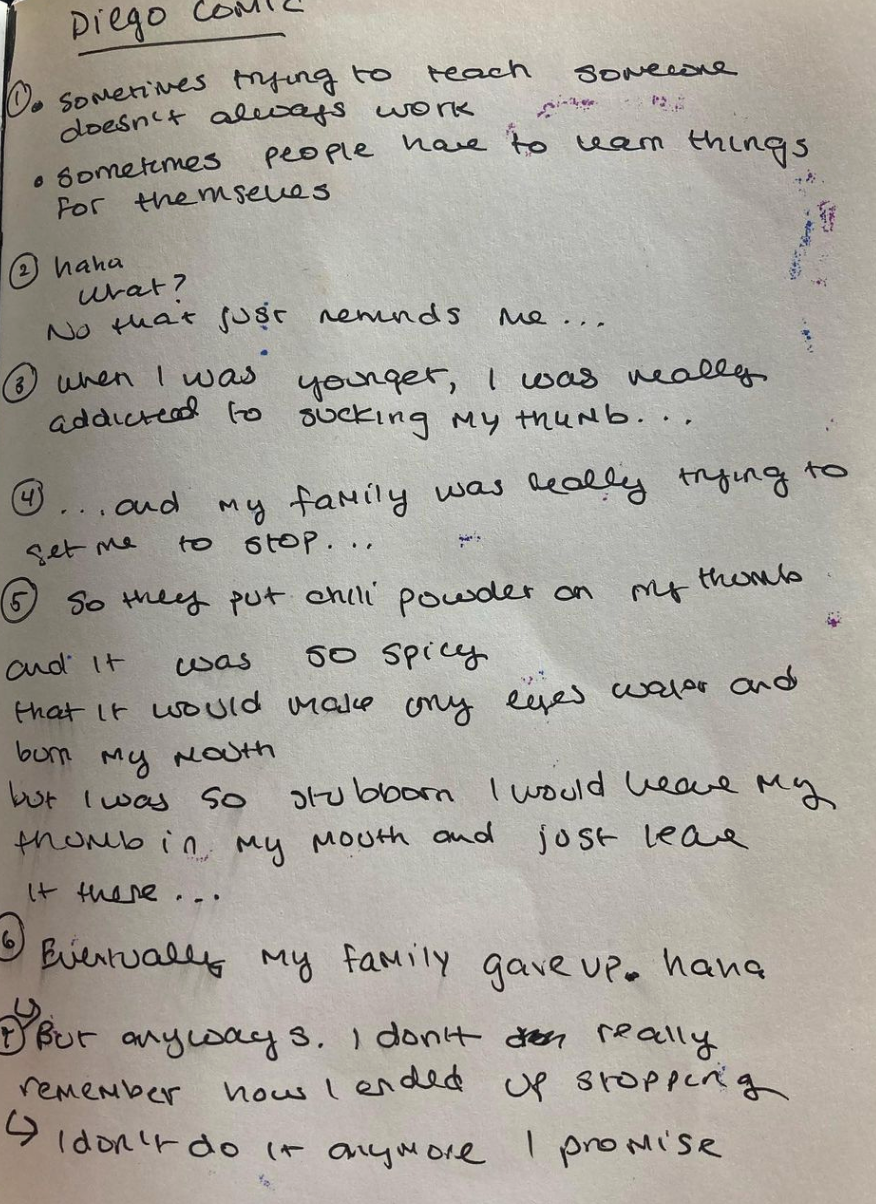 Diego Comic
① • sometimes trying to reach someone
doesn't always work
• sometimes people have to learn things
for themselves
② haha
what?
No that just reminds me...
③ when I was younger, I was really
addicted to sucking my thumb...
④ ...and my family was really trying to
get me to stop...
⑤ So they put chili powder on my thumb
and it was so spicy
that it would make my eyes water and
burn my mouth
but I was so stubborn I would leave my
thumb in my mouth and just leave
it there...
⑥ Eventually my family gave up. haha
⑦ But anyways. I don't really
remember how I ended up stopping
↳ I don't do it anymore I promise